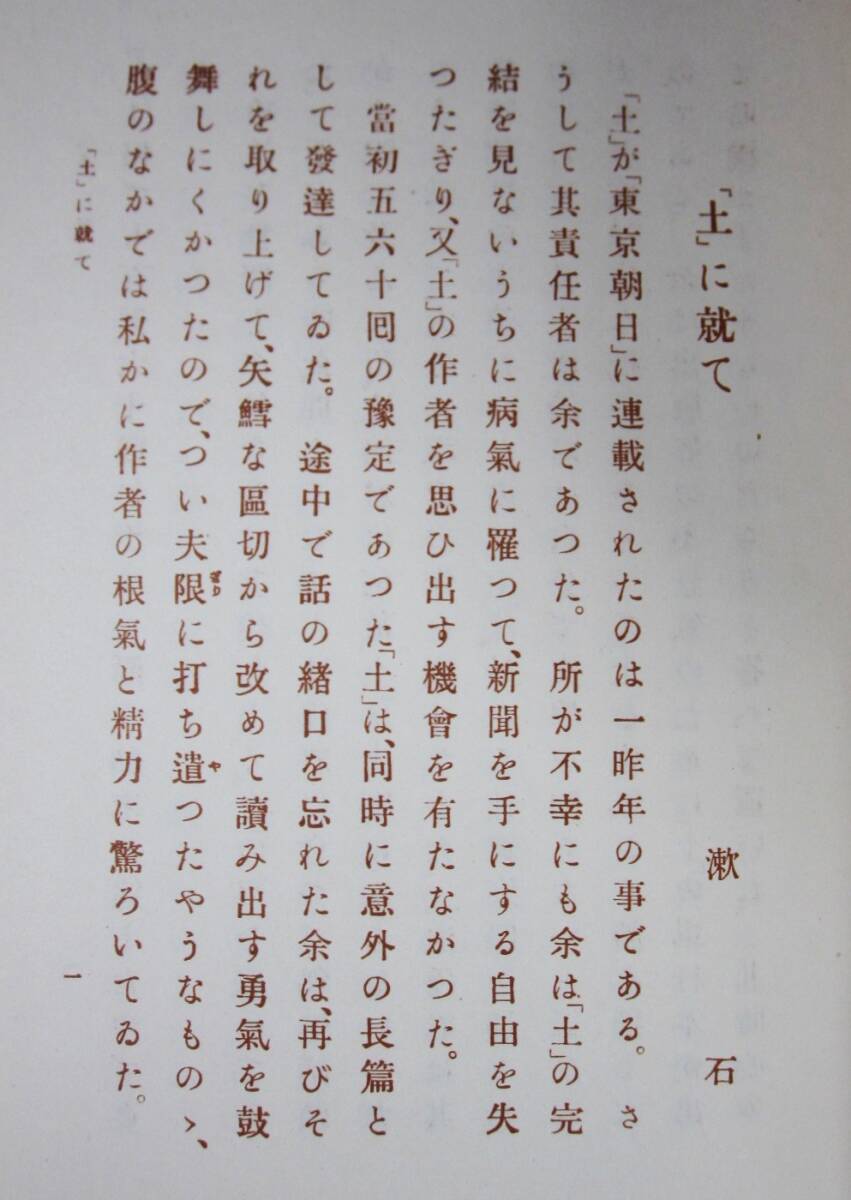 「土」に就て
漱石
「土」が「東京朝日」に連載されたのは一昨年の事である。さ
うして其責任者は余であつた。所が不幸にも余は「土」の完
結を見ないうちに病氣に罹つて、新聞を手にする自由を失
つたぎり、又「土」の作者を思ひ出す機會を有たなかつた。
當初五六十囘の豫定であつた「土」は、同時に意外の長篇と
して發達してゐた。途中で話の緒口を忘れた余は、再びそ
れを取り上げて、矢鱈な區切から改めて讀み出す勇氣を鼓
舞しにくかつたので、つい夫限ぎりに打ち遣やつたやうなものゝ、
腹のなかでは私かに作者の根氣と精力に驚ろいてゐた。
「土」に就て
一